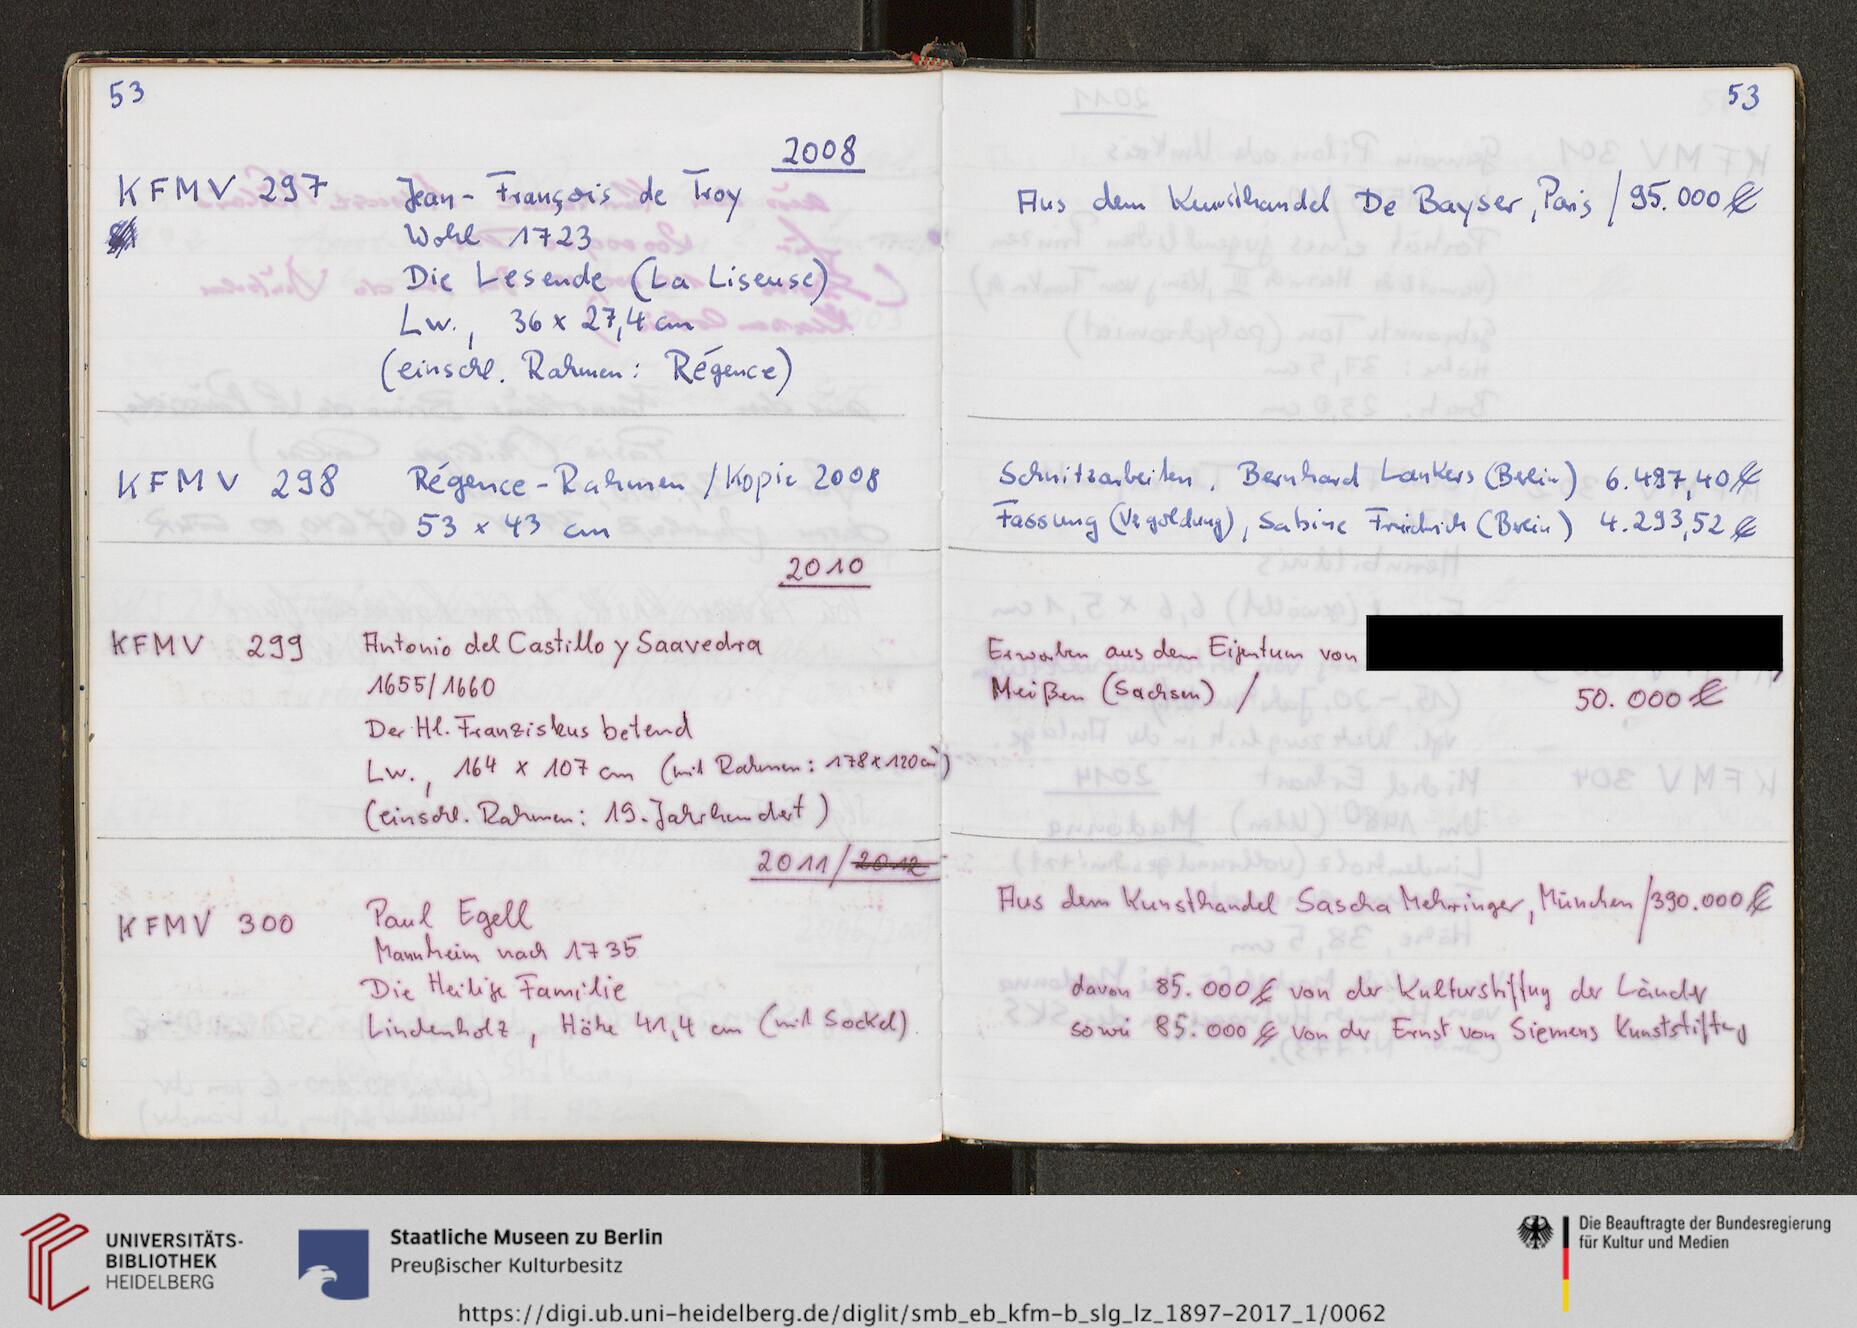 53
2008
KFMV 297 Jean-François de Troy
Wohl 1723
Die Lesende (La Liseuse)
Lw., 36 x 27,4 cm
(einschl. Rahmen: Régence)
KFMV 298 Régence-Rahmen / Kopie 2008
53 x 43 cm
2010
KFMV 299 Antonio del Castillo y Saavedra
1655/1660
Der Hl. Franziskus betend
Lw., 164 x 107 cm (mit Rahmen: 178 x 120 cm)
(einschl. Rahmen: 19. Jahrhundert)
2011/2012
KFMV 300 Paul Egell
Mannheim nach 1735
Die Heilige Familie
Lindenholz, Höhe 41,4 cm (mit Sockel)
53
Aus dem Kunsthandel De Bayser, Paris / 95.000 €
Schnitzarbeiten, Bernhard Lankers (Berlin) 6.497,40 €
Fassung (Vergoldung), Sabine Friedrich (Berlin) 4.293,52 €
Erworben aus dem Eigentum von
Meißen (Sachsen) / 50.000 €
Aus dem Kunsthandel Sascha Mehringer, München / 390.000 €
davon 85.000 € von der Kulturstiftung der Länder
sowie 85.000 € von der Ernst von Siemens Kunststiftung
UNIVERSITÄTS-
BIBLIOTHEK
HEIDELBERG
Staatliche Museen zu Berlin
Preußischer Kulturbesitz
Die Beauftragte der Bundesregierung
für Kultur und Medien
https://digi.ub.uni-heidelberg.de/diglit/smb_eb_kfm-b_slg_lz_1897-2017_1/0062